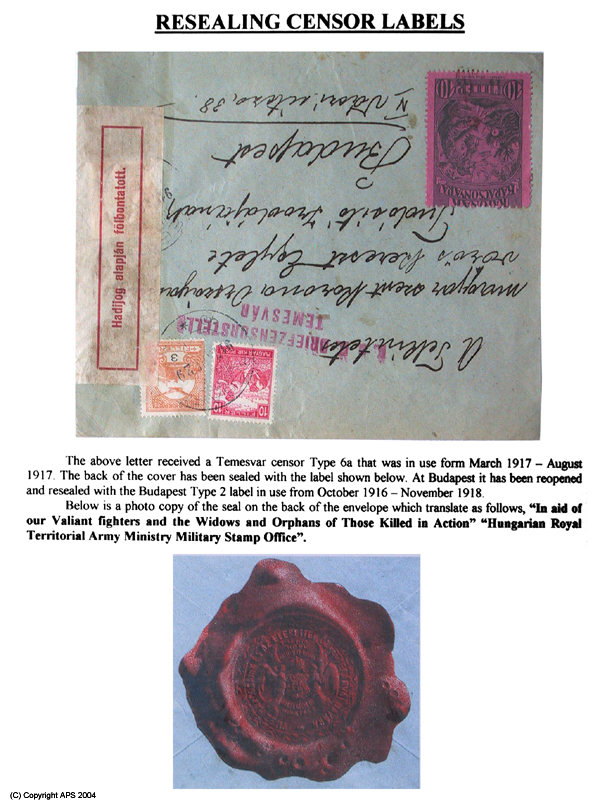 RESEALING CENSOR LABELS
Hadijog alapján fölbontatott.
A Tekintetes
magyar szent Korona Országai
vörös Kereszt Egylete
Tudósító Irodájának
Budapest
IV Váczi utcza. 38.
BRIEFZENSURSTELLE
TEMESVÁR
3
10 10
MAGYAR KIR. POSTA
10 10
KARÁCSONYRA
The above letter received a Temesvar censor Type 6a that was in use form March 1917 – August
1917. The back of the cover has been sealed with the label shown below. At Budapest it has been reopened
and resealed with the Budapest Type 2 label in use from October 1916 – November 1918.
Below is a photo copy of the seal on the back of the envelope which translate as follows, “In aid of
our Valiant fighters and the Widows and Orphans of Those Killed in Action” “Hungarian Royal
Territorial Army Ministry Military Stamp Office”.
(C) Copyright APS 2004